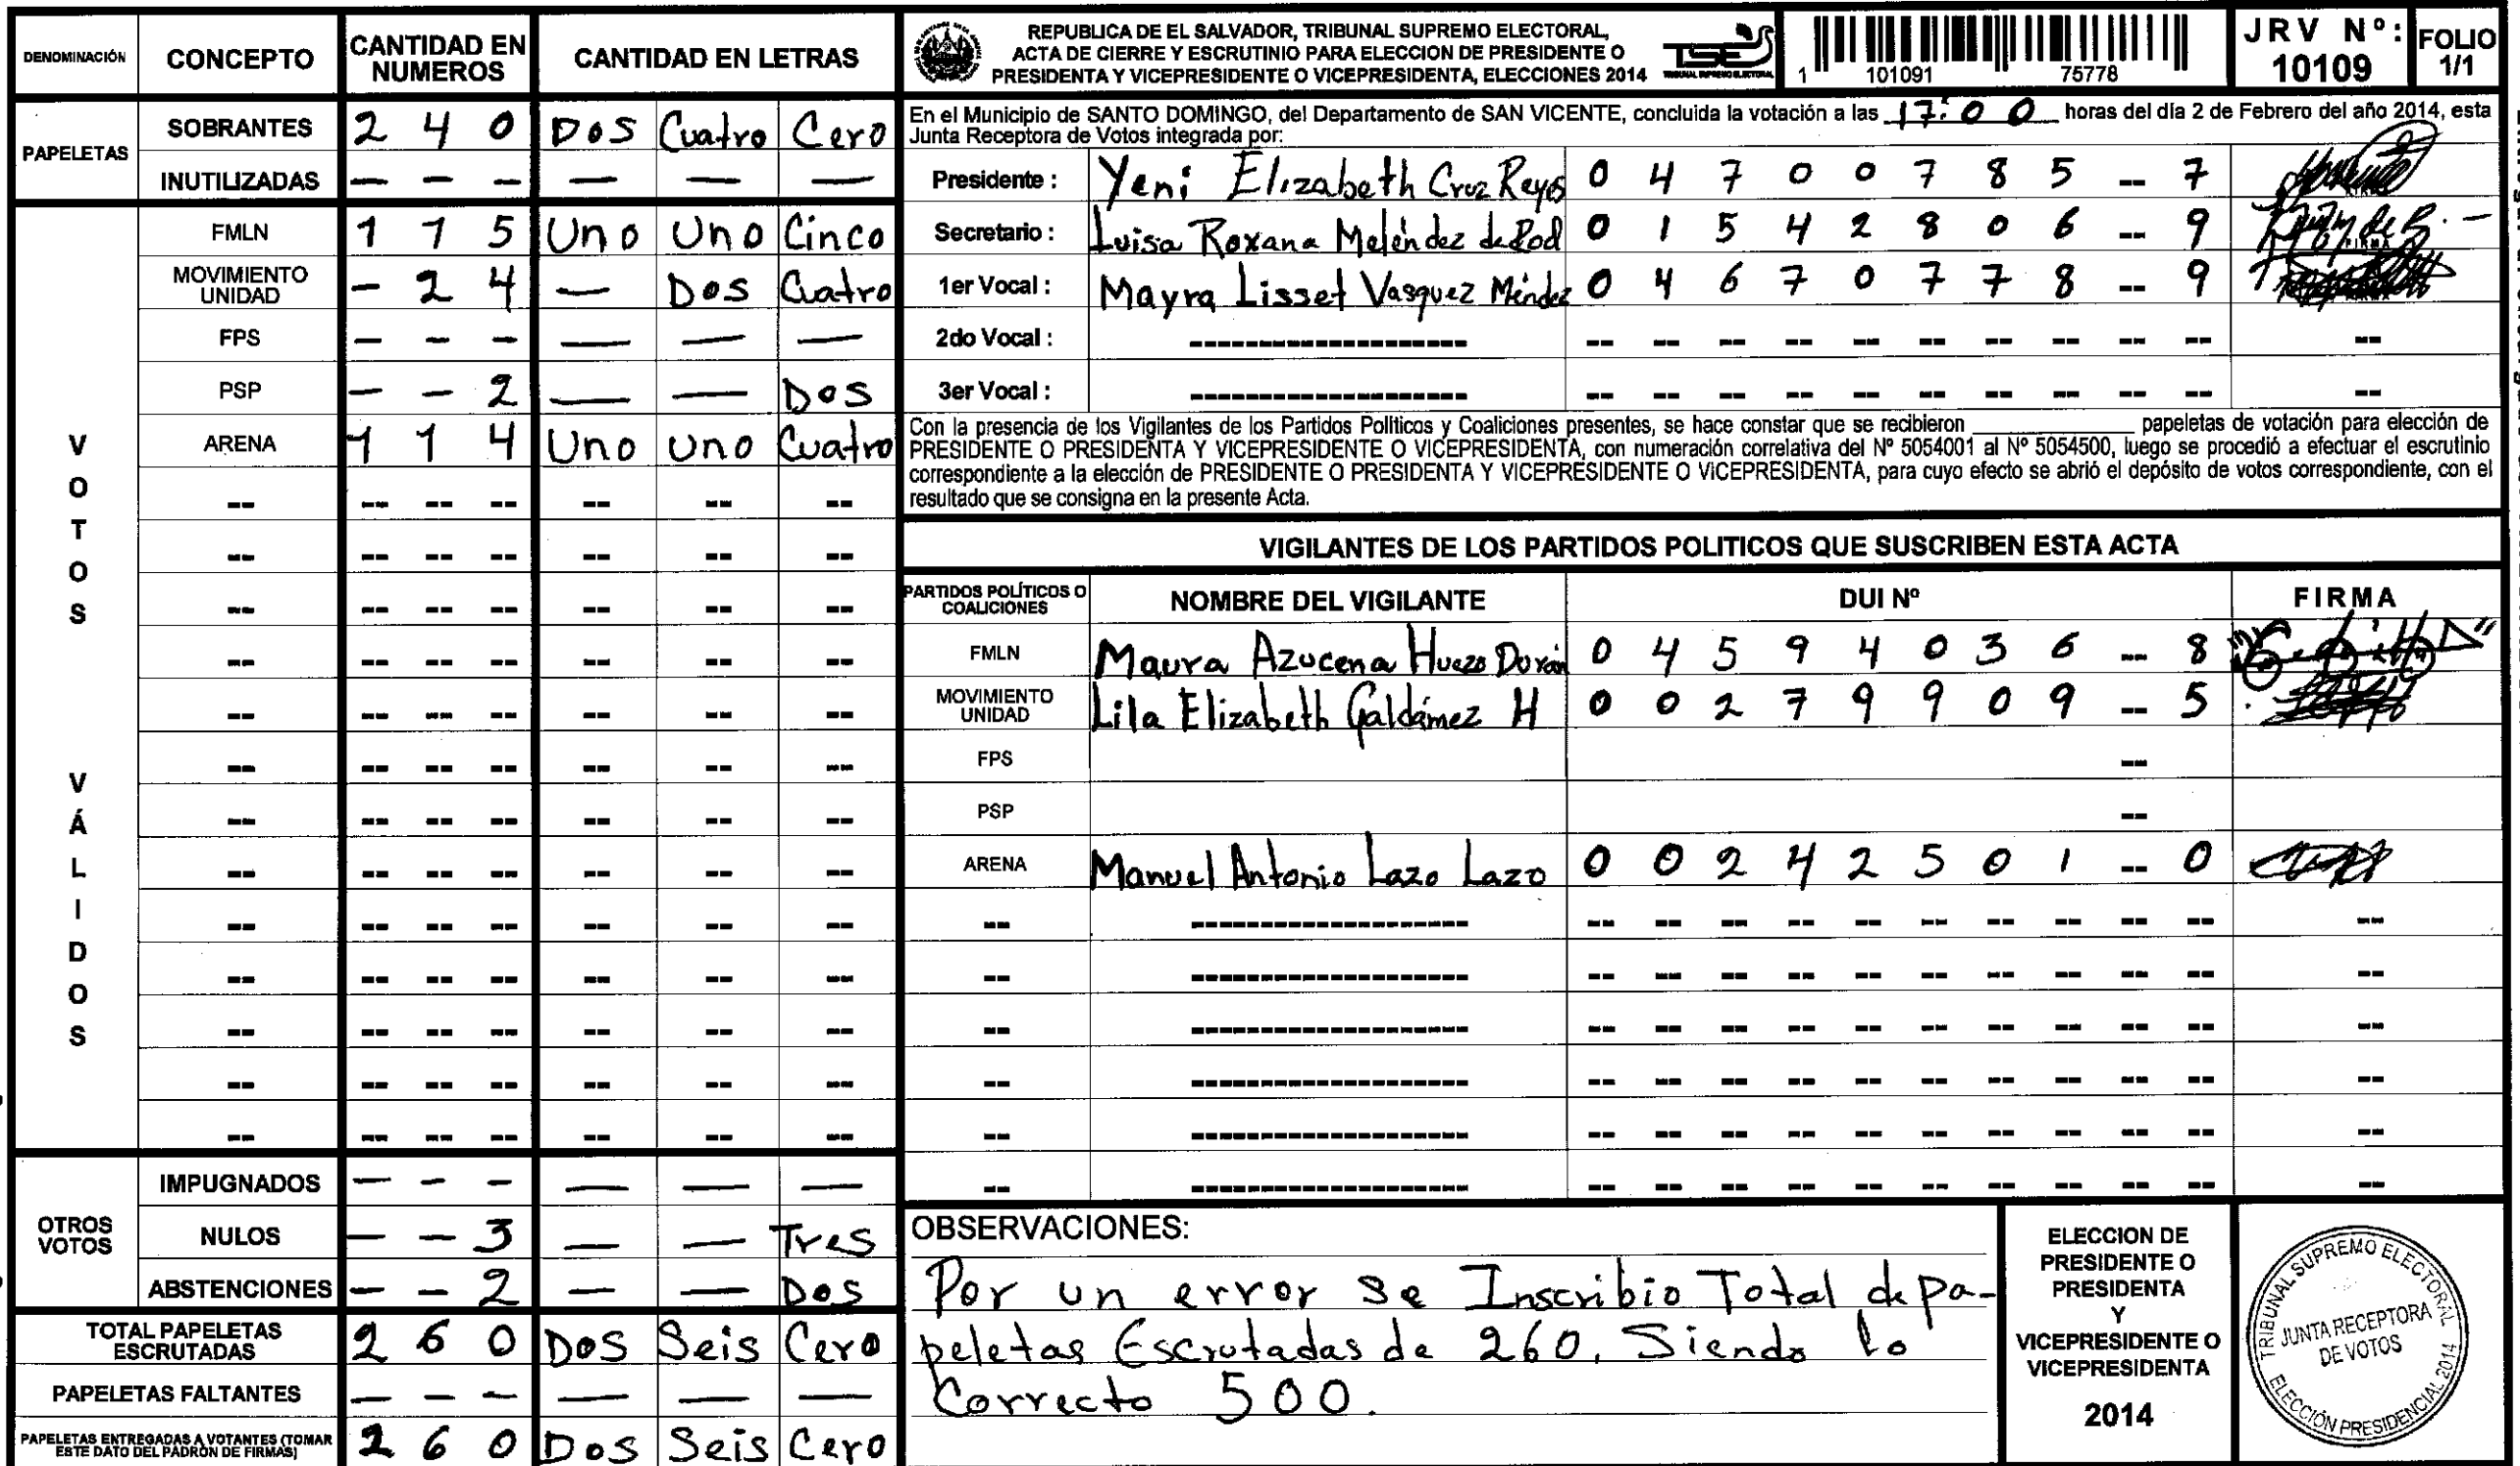 DENOMINACIÓN CONCEPTO CANTIDAD EN NUMEROS CANTIDAD EN LETRAS
PAPELETAS
SOBRANTES 2 4 0 Dos Cuatro Cero
INUTILIZADAS — — — — — —
VOTOS VÁLIDOS
FMLN 1 1 5 Uno Uno Cinco
MOVIMIENTO UNIDAD - 2 4 — Dos Cuatro
FPS — — — — — —
PSP — — 2 — — Dos
ARENA 1 1 4 Uno uno Cuatro
-- -- -- -- -- -- --
-- -- -- -- -- -- --
-- -- -- -- -- -- --
-- -- -- -- -- -- --
-- -- -- -- -- -- --
-- -- -- -- -- -- --
-- -- -- -- -- -- --
-- -- -- -- -- -- --
-- -- -- -- -- -- --
-- -- -- -- -- -- --
-- -- -- -- -- -- --
-- -- -- -- -- -- --
-- -- -- -- -- -- --
OTROS VOTOS
IMPUGNADOS — — — — — —
NULOS — — 3 — — Tres
ABSTENCIONES — — 2 — — Dos
TOTAL PAPELETAS ESCRUTADAS 2 6 0 Dos Seis Cero
PAPELETAS FALTANTES — — — — — —
PAPELETAS ENTREGADAS A VOTANTES (TOMAR ESTE DATO DEL PADRÓN DE FIRMAS) 2 6 0 Dos Seis Cero
REPUBLICA DE EL SALVADOR, TRIBUNAL SUPREMO ELECTORAL,
ACTA DE CIERRE Y ESCRUTINIO PARA ELECCION DE PRESIDENTE O
PRESIDENTA Y VICEPRESIDENTE O VICEPRESIDENTA, ELECCIONES 2014
TSE
TRIBUNAL SUPREMO ELECTORAL
1 101091 75778
JRV Nº:
10109
FOLIO
1/1
En el Municipio de SANTO DOMINGO, del Departamento de SAN VICENTE, concluida la votación a las 17:00 horas del día 2 de Febrero del año 2014, esta
Junta Receptora de Votos integrada por:
Presidente : Yeni Elizabeth Cruz Reyes 0 4 7 0 0 7 8 5 -- 7
Secretario : Luisa Roxana Meléndez de Rod 0 1 5 4 2 8 0 6 -- 9
1er Vocal : Mayra Lisset Vasquez Méndez 0 4 6 7 0 7 7 8 -- 9
2do Vocal : ------------------- -- -- -- -- -- -- -- -- -- -- --
3er Vocal : ------------------- -- -- -- -- -- -- -- -- -- -- --
Con la presencia de los Vigilantes de los Partidos Políticos y Coaliciones presentes, se hace constar que se recibieron ____________ papeletas de votación para elección de
PRESIDENTE O PRESIDENTA Y VICEPRESIDENTE O VICEPRESIDENTA, con numeración correlativa del Nº 5054001 al Nº 5054500, luego se procedió a efectuar el escrutinio
correspondiente a la elección de PRESIDENTE O PRESIDENTA Y VICEPRESIDENTE O VICEPRESIDENTA, para cuyo efecto se abrió el depósito de votos correspondiente, con el
resultado que se consigna en la presente Acta.
VIGILANTES DE LOS PARTIDOS POLITICOS QUE SUSCRIBEN ESTA ACTA
PARTIDOS POLÍTICOS O COALICIONES NOMBRE DEL VIGILANTE DUI Nº FIRMA
FMLN Maura Azucena Huezo Durán 0 4 5 9 4 0 3 6 -- 8
MOVIMIENTO UNIDAD Lila Elizabeth Galdámez H 0 0 2 7 9 9 0 9 -- 5
FPS --
PSP --
ARENA Manuel Antonio Lazo Lazo 0 0 2 4 2 5 0 1 -- 0
-- ------------------- -- -- -- -- -- -- -- -- -- -- --
-- ------------------- -- -- -- -- -- -- -- -- -- -- --
-- ------------------- -- -- -- -- -- -- -- -- -- -- --
-- ------------------- -- -- -- -- -- -- -- -- -- -- --
-- ------------------- -- -- -- -- -- -- -- -- -- -- --
-- ------------------- -- -- -- -- -- -- -- -- -- -- --
OBSERVACIONES:
Por un error se Inscribio Total de pa-
peletas Escrutadas de 260. Siendo lo
Correcto 500.
ELECCION DE
PRESIDENTE O
PRESIDENTA
Y
VICEPRESIDENTE O
VICEPRESIDENTA
2014
TRIBUNAL SUPREMO ELECTORAL
JUNTA RECEPTORA
DE VOTOS
ELECCIÓN PRESIDENCIAL 2014